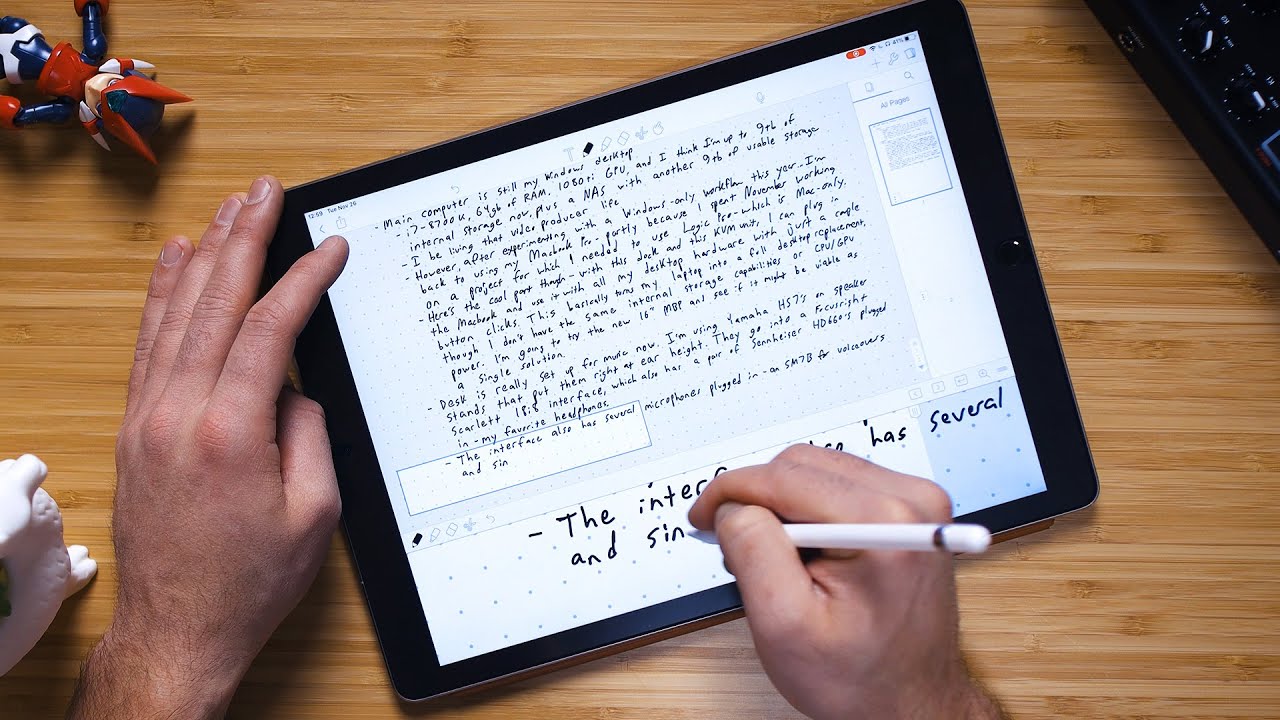 12:59 Tue Nov 26
41%
All Pages
- Main computer is still my Windows desktop
i7-8700K, 64gb of RAM, 1080ti GPU, and I think I'm up to 9tb of
internal storage now, plus a NAS with another 9tb of usable storage
I be living that video producer life
- However, after experimenting with a Windows-only workflow this year I'm
back to using my Macbook Pro, partly because I spent November working
on a project for which I needed to use Logic Pro-which is Mac-only.
- Here's the cool part though - with this dock and this KVM unit, I can plug in
the Macbook and use it with all my desktop hardware with just a couple
button clicks. This basically turns my laptop into a full desktop replacement,
though I don't have the same internal storage capabilities or CPU/GPU
power. I'm going to try the new 16" MBP and see if it might be viable as
a single solution.
- Desk is really set up for music now. I'm using Yamaha HS7's on speaker
stands that put them right at ear height. They go into a Focusright
Scarlett 18i8 interface, which also has a pair of Sennheiser HD660's plugged
in - my favorite headphones.
- The interface also has several microphones plugged in - an SM7B for voiceovers
and sin
- The inter has several
and sin